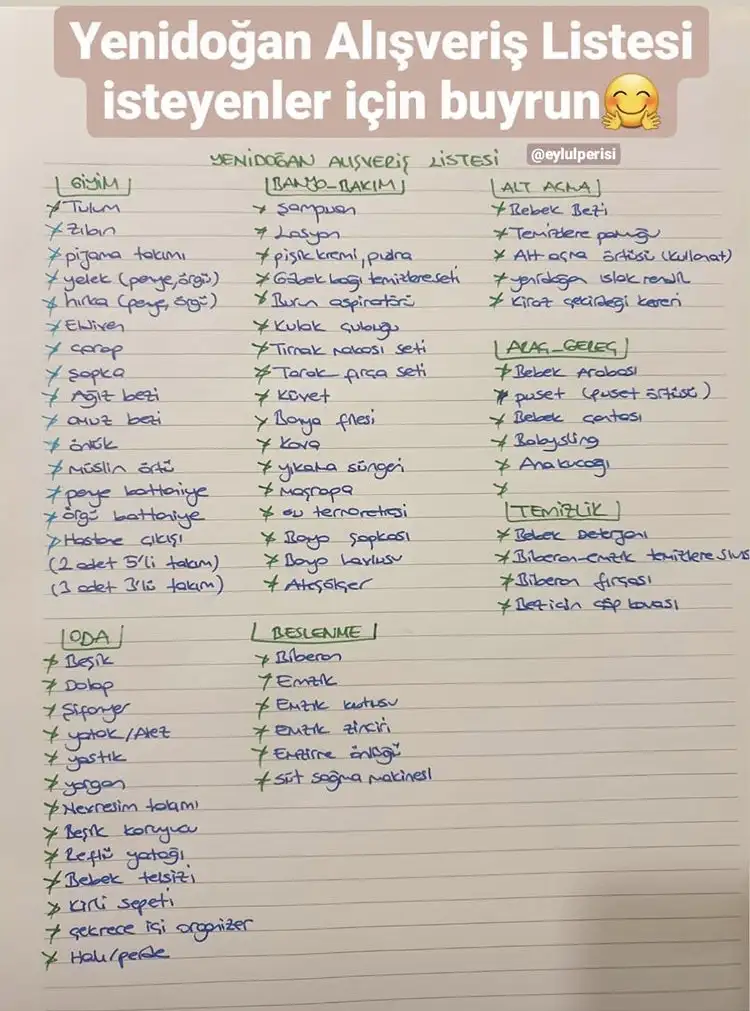 Yenidoğan Alışveriş Listesi
isteyenler için buyrun🤗
@eylulperisi
YENİDOĞAN ALIŞVERİŞ LİSTESİ
GİYİM
Tulum
Zıbın
pijama takımı
yelek (penye, örgü)
hırka (penye, örgü)
Eldiven
çorap
şapka
Ağız bezi
omuz bezi
önlük
müslin örtü
penye battaniye
örgü battaniye
Hastane çıkışı
(2 adet 5'li takım)
(3 adet 3'lü takım)
BANYO-BAKIM
şampuan
Losyon
pişik kremi, pudra
Göbek bağı temizleme seti
Burun aspiratörü
Kulak çubuğu
Tırnak makası seti
Tarak-fırça seti
Küvet
Banyo filesi
Kova
yıkama süngeri
Maşrapa
su termometresi
Banyo şapkası
Banyo havlusu
Ateşölçer
ALT AÇMA
Bebek Bezi
Temizleme pamuğu
Alt açma örtüsü (kullanat)
yenidoğan ıslak mendil
Kiraz çekirdeği kemeri
ARAÇ-GEREÇ
Bebek Arabası
puset (puset örtüsü)
Bebek çantası
Babysling
Anakucağı
TEMİZLİK
Bebek Deterjanı
Biberon-emzik temizleme sıvıs
Biberon fırçası
Bez için çöp kovası
ODA
Beşik
Dolap
Şifonyer
yatak/Alez
yastık
yorgan
Nevresim takımı
Beşik koruyucu
Reflü yatağı
Bebek telsizi
Kirli sepeti
çekmece içi organizer
Halı/perde
BESLENME
Biberon
Emzik
Emzik kutusu
Emzik zinciri
Emzirme önlüğü
Süt sağma makinesi